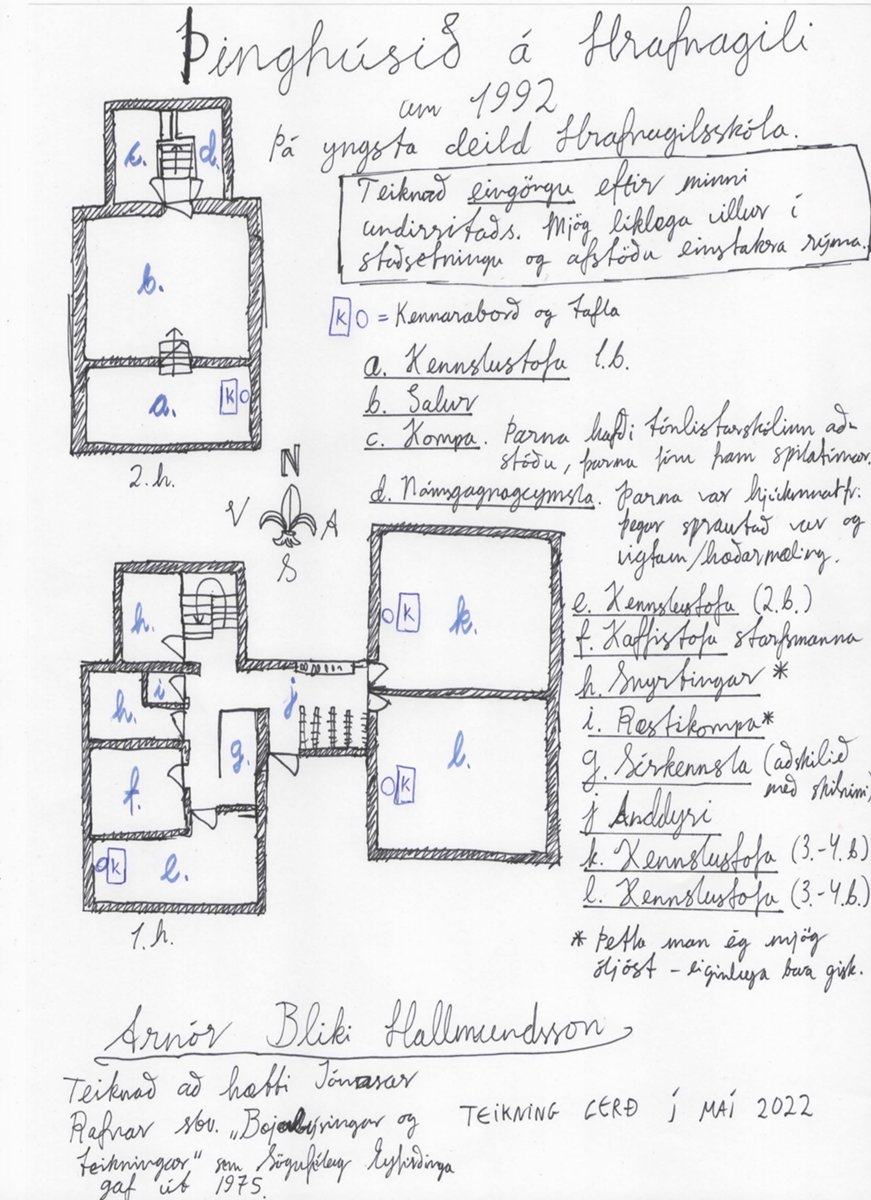 Þinghúsið á Hrafnagili
um 1992
Þá yngsta deild Hrafnagilsskóla.
Teiknað eingöngu eftir minni
undirritaðs. Mjög líklega villur í
staðsetningu og afstöðu einstakra rýma.
K = Kennaraborð og tafla
a. Kennslustofa 1.b.
b. Salur
c. Kompa. Þarna hafði tónlistarskólinn að-
stöðu, þarna fóru fram spilatímar.
d. Námsgagnageymsla. Þarna var hjúkunnarfr.
þegar sprautað var og
vigtam/hæðarmæling.
e. Kennslustofa (2.b.)
f. Kaffistofa starfsmanna
h. Snyrtingar *
i. Ræstikompa*
g. Sérkennsla (aðskilið
með skilrúmi)
j Anddyri
k. Kennslustofa (3.-4.b)
l. Kennslustofa (3.-4.b.)
* Þetta man ég mjög
óljóst - eiginlega bara gisk.
c.
d.
b.
a.
K
2.h.
N
V
A
S
h.
i
h.
j
g.
f.
K
e.
K
k.
K
l.
1.h.
Arnór Bliki Hallmundsson
Teiknað að hætti Jónasar
Rafnar sbr. „Bæjalýsingar og
teikningar" sem Sögufélag Eyfirðinga
gaf út 1975.
TEIKNING GERÐ Í MAÍ 2022